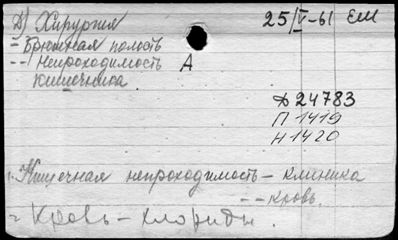 Д) Хирургия 25/V-61 ЕШ
- Брюшная полость
-- Непроходимость А
кишечника
Д 24783
П 1419
Н 1420
1. Кишечная непроходимость - клиника
-- кровь.
2. Кровь - хлориды.